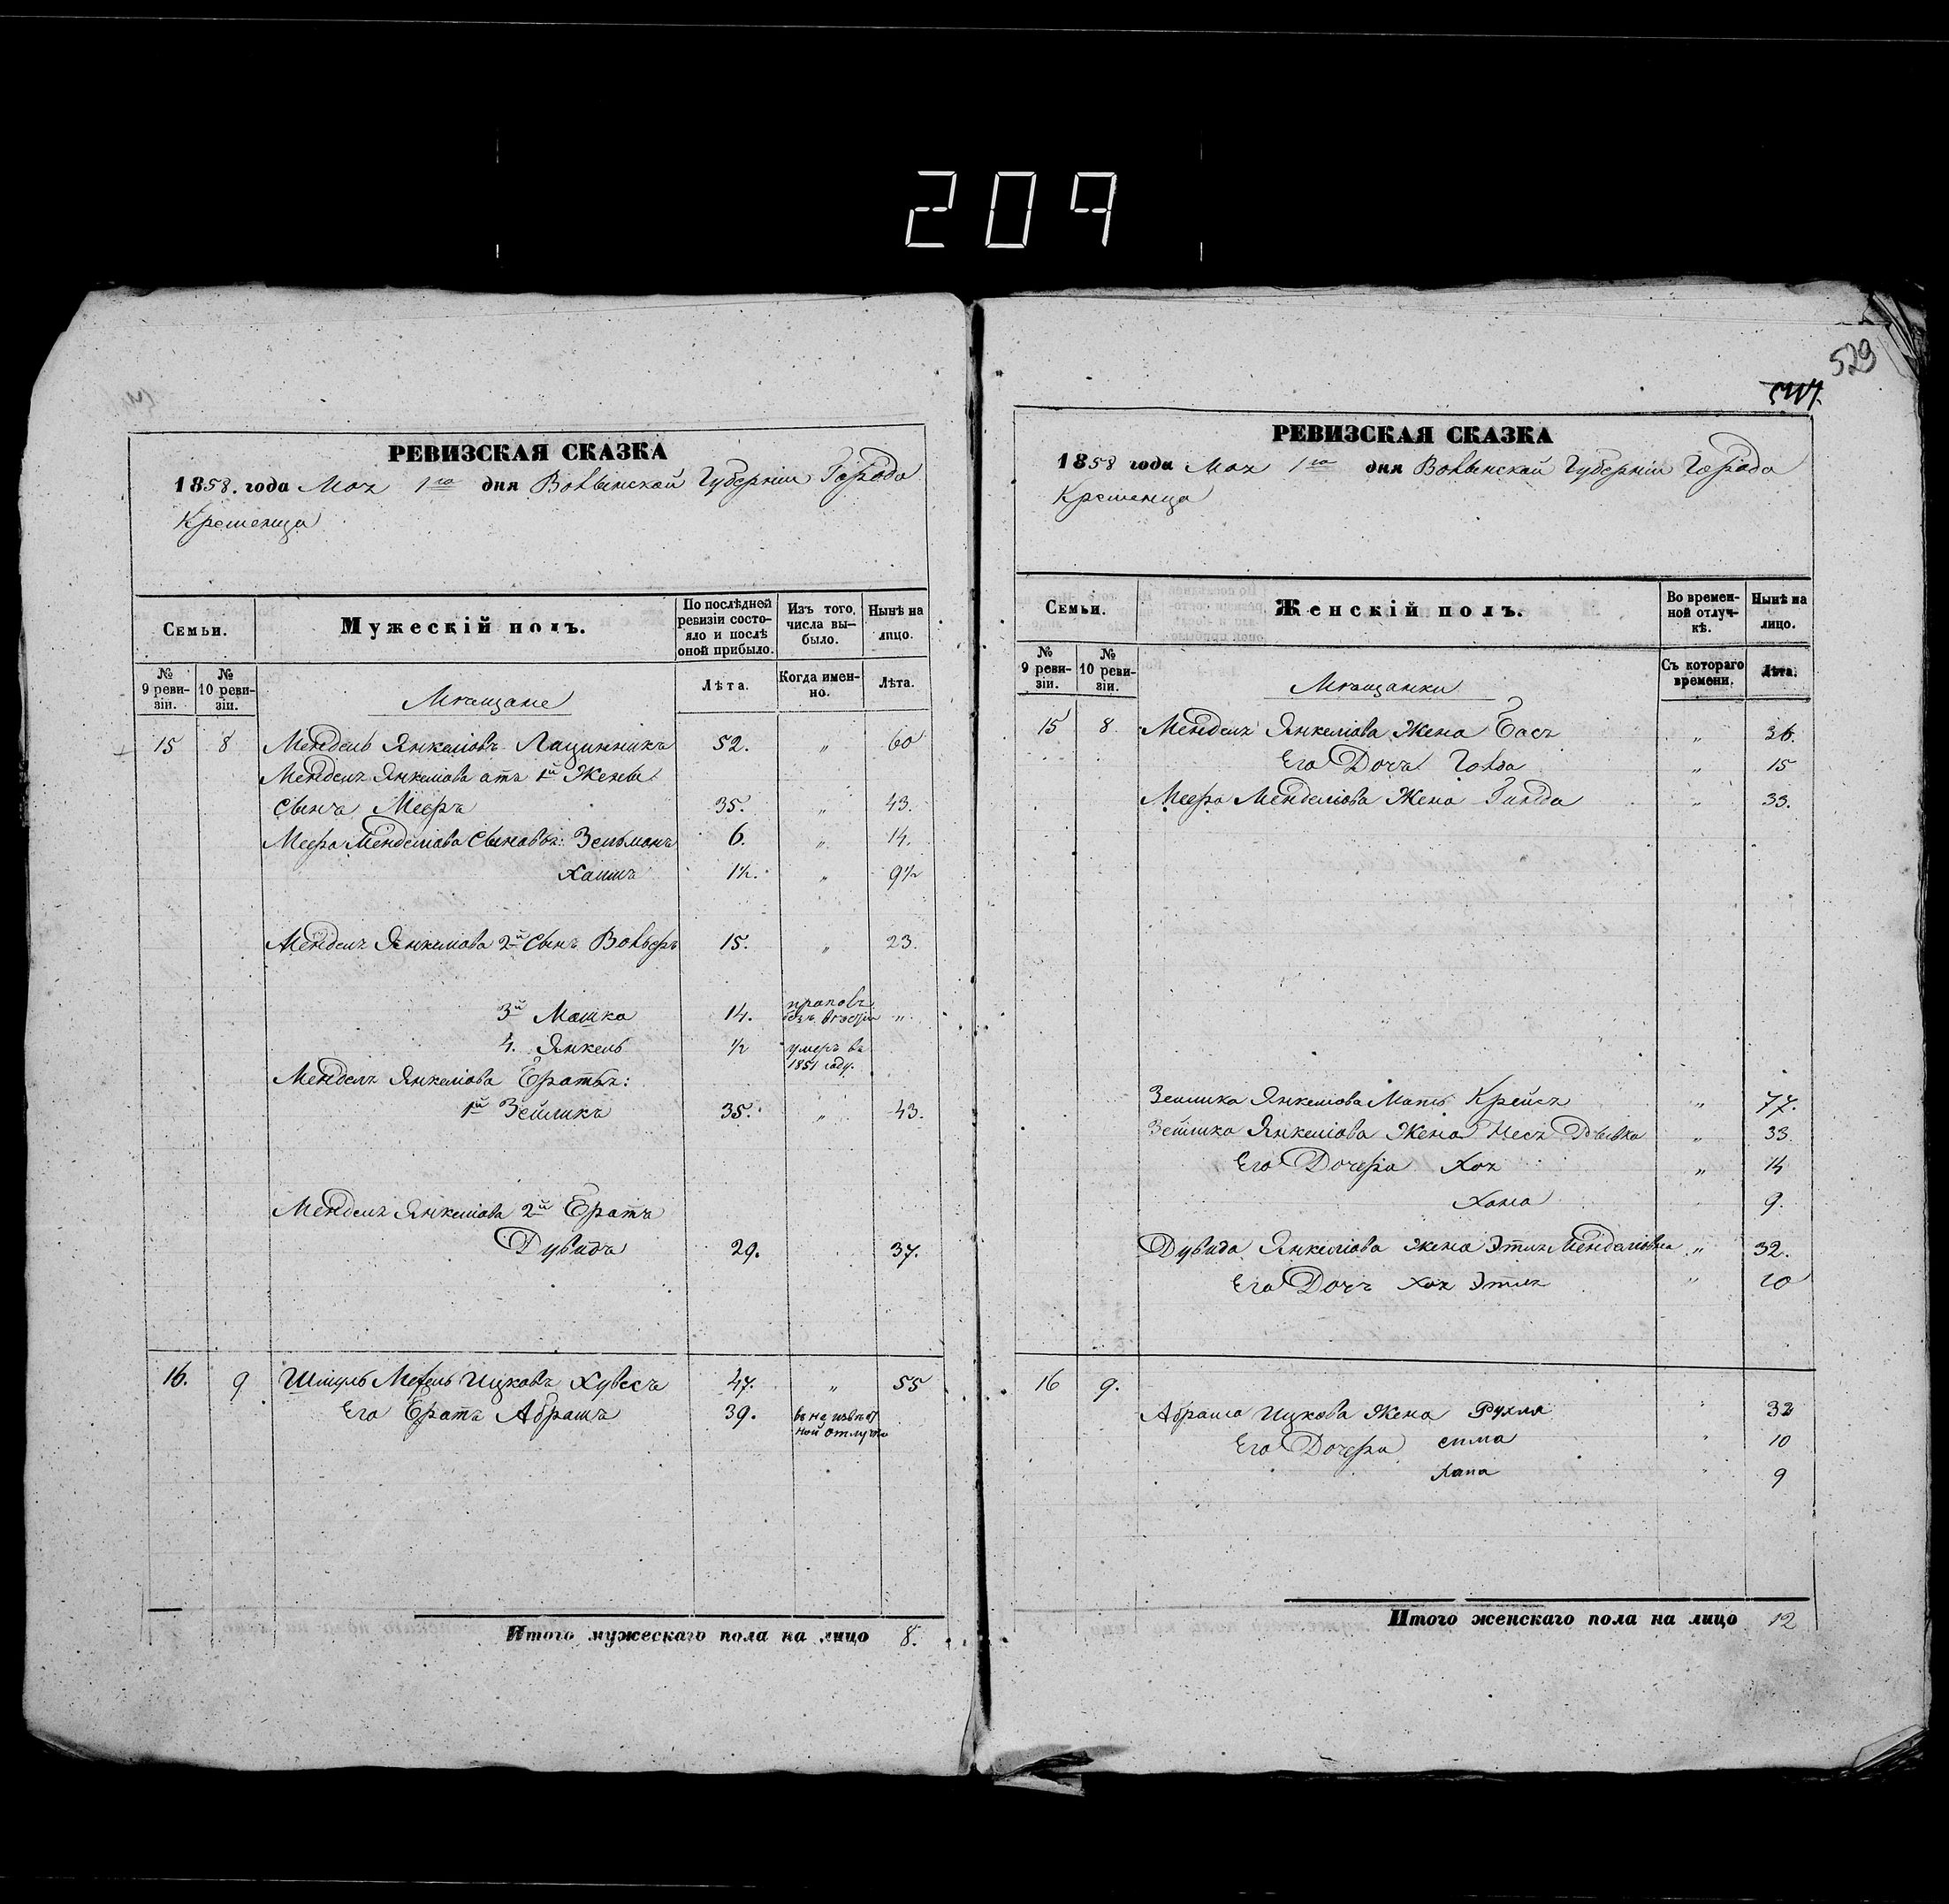 209
529
РЕВИЗСКАЯ СКАЗКА
1858. года Мая 1го дня Волынской Губерніи Города
Кременца
Семьи.
Мужескій полъ.
По послѣдней ревизіи состояло и послѣ оной прибыло.
Изъ того числа выбыло.
Нынѣ на лицо.
№ 9 ревизіи.
№ 10 ревизіи.
Лѣта.
Когда именно.
Лѣта.
Мѣщане
15 8 Мендель Янкеліовъ 52. " 60
Менделя Янкеліова отъ 1й Жены
сынъ Мееръ 35. " 43.
Меера Менделіова Сыновья: Зельманъ 6. " 14.
Хаимъ 1½. " 9½
Менделя Янкеліова 2й Сынъ Вольфъ 15. " 23.
3й Мошко 14. "
4. Янкель ½ умеръ въ
1851 году.
Менделя Янкеліова Братья:
1й Зейликъ 35. " 43.
Менделя Янкеліова 2й Братъ
Дувидъ 29. 37.
16. 9 Шмуль Ицковъ Хувесъ 47. " 55
Его Братъ Абрамъ 39. въ неизвѣст
ной отлучкѣ
Итого мужескаго пола на лицо 8.
РЕВИЗСКАЯ СКАЗКА
1858 года Мая 1го дня Волынской Губерніи Города
Кременца
Семьи.
Женскій полъ.
Во временной отлучкѣ.
Нынѣ на лицо.
№ 9 ревизіи.
№ 10 ревизіи.
Съ котораго времени.
Лѣта.
Мѣщанки
15 8 Менделя Янкеліова Жена Бася " 36.
Его Дочь Голда " 15
Меера Менделіова Жена " 33.
Зейлика Янкеліова Мать Крейся " 77.
Зейлика Янкеліова Жена " 33.
Его Дочери Хая " 14
Хана 9.
Дувида Янкеліова жена Этля Менделіовна " 32.
Его Дочь Хая Этля " 10
16 9.
Абрама Ицкова Жена Рухля " 32
Его Дочери сима " 10
Хана " 9
Итого женскаго пола на лицо 12